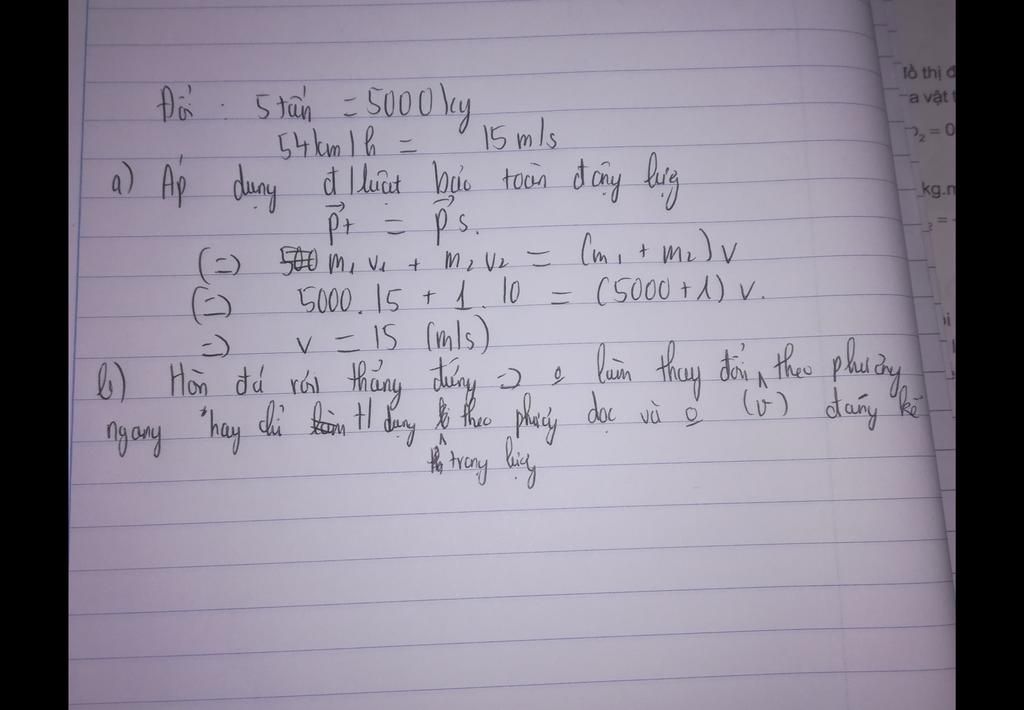 Đổi : 5 tấn = 5000 kg
54 km/h = 15 m/s
a) Áp dụng đ/luật bảo toàn động lượng
p⃗t = p⃗s.
(=) m₁ v₁ + m₂ v₂ = (m₁ + m₂) v
(=) 5000. 15 + 1. 10 = (5000 + 1) v.
=) v = 15 (m/s)
b) Hòn đá rơi thẳng đứng => o làm thay đổi (v) theo phương
ngang hay chỉ t/dụng trọng lực theo phương dọc và o đáng kể
lồ thị đ
a vật t
p₂ = 0
kg.m
₃ =